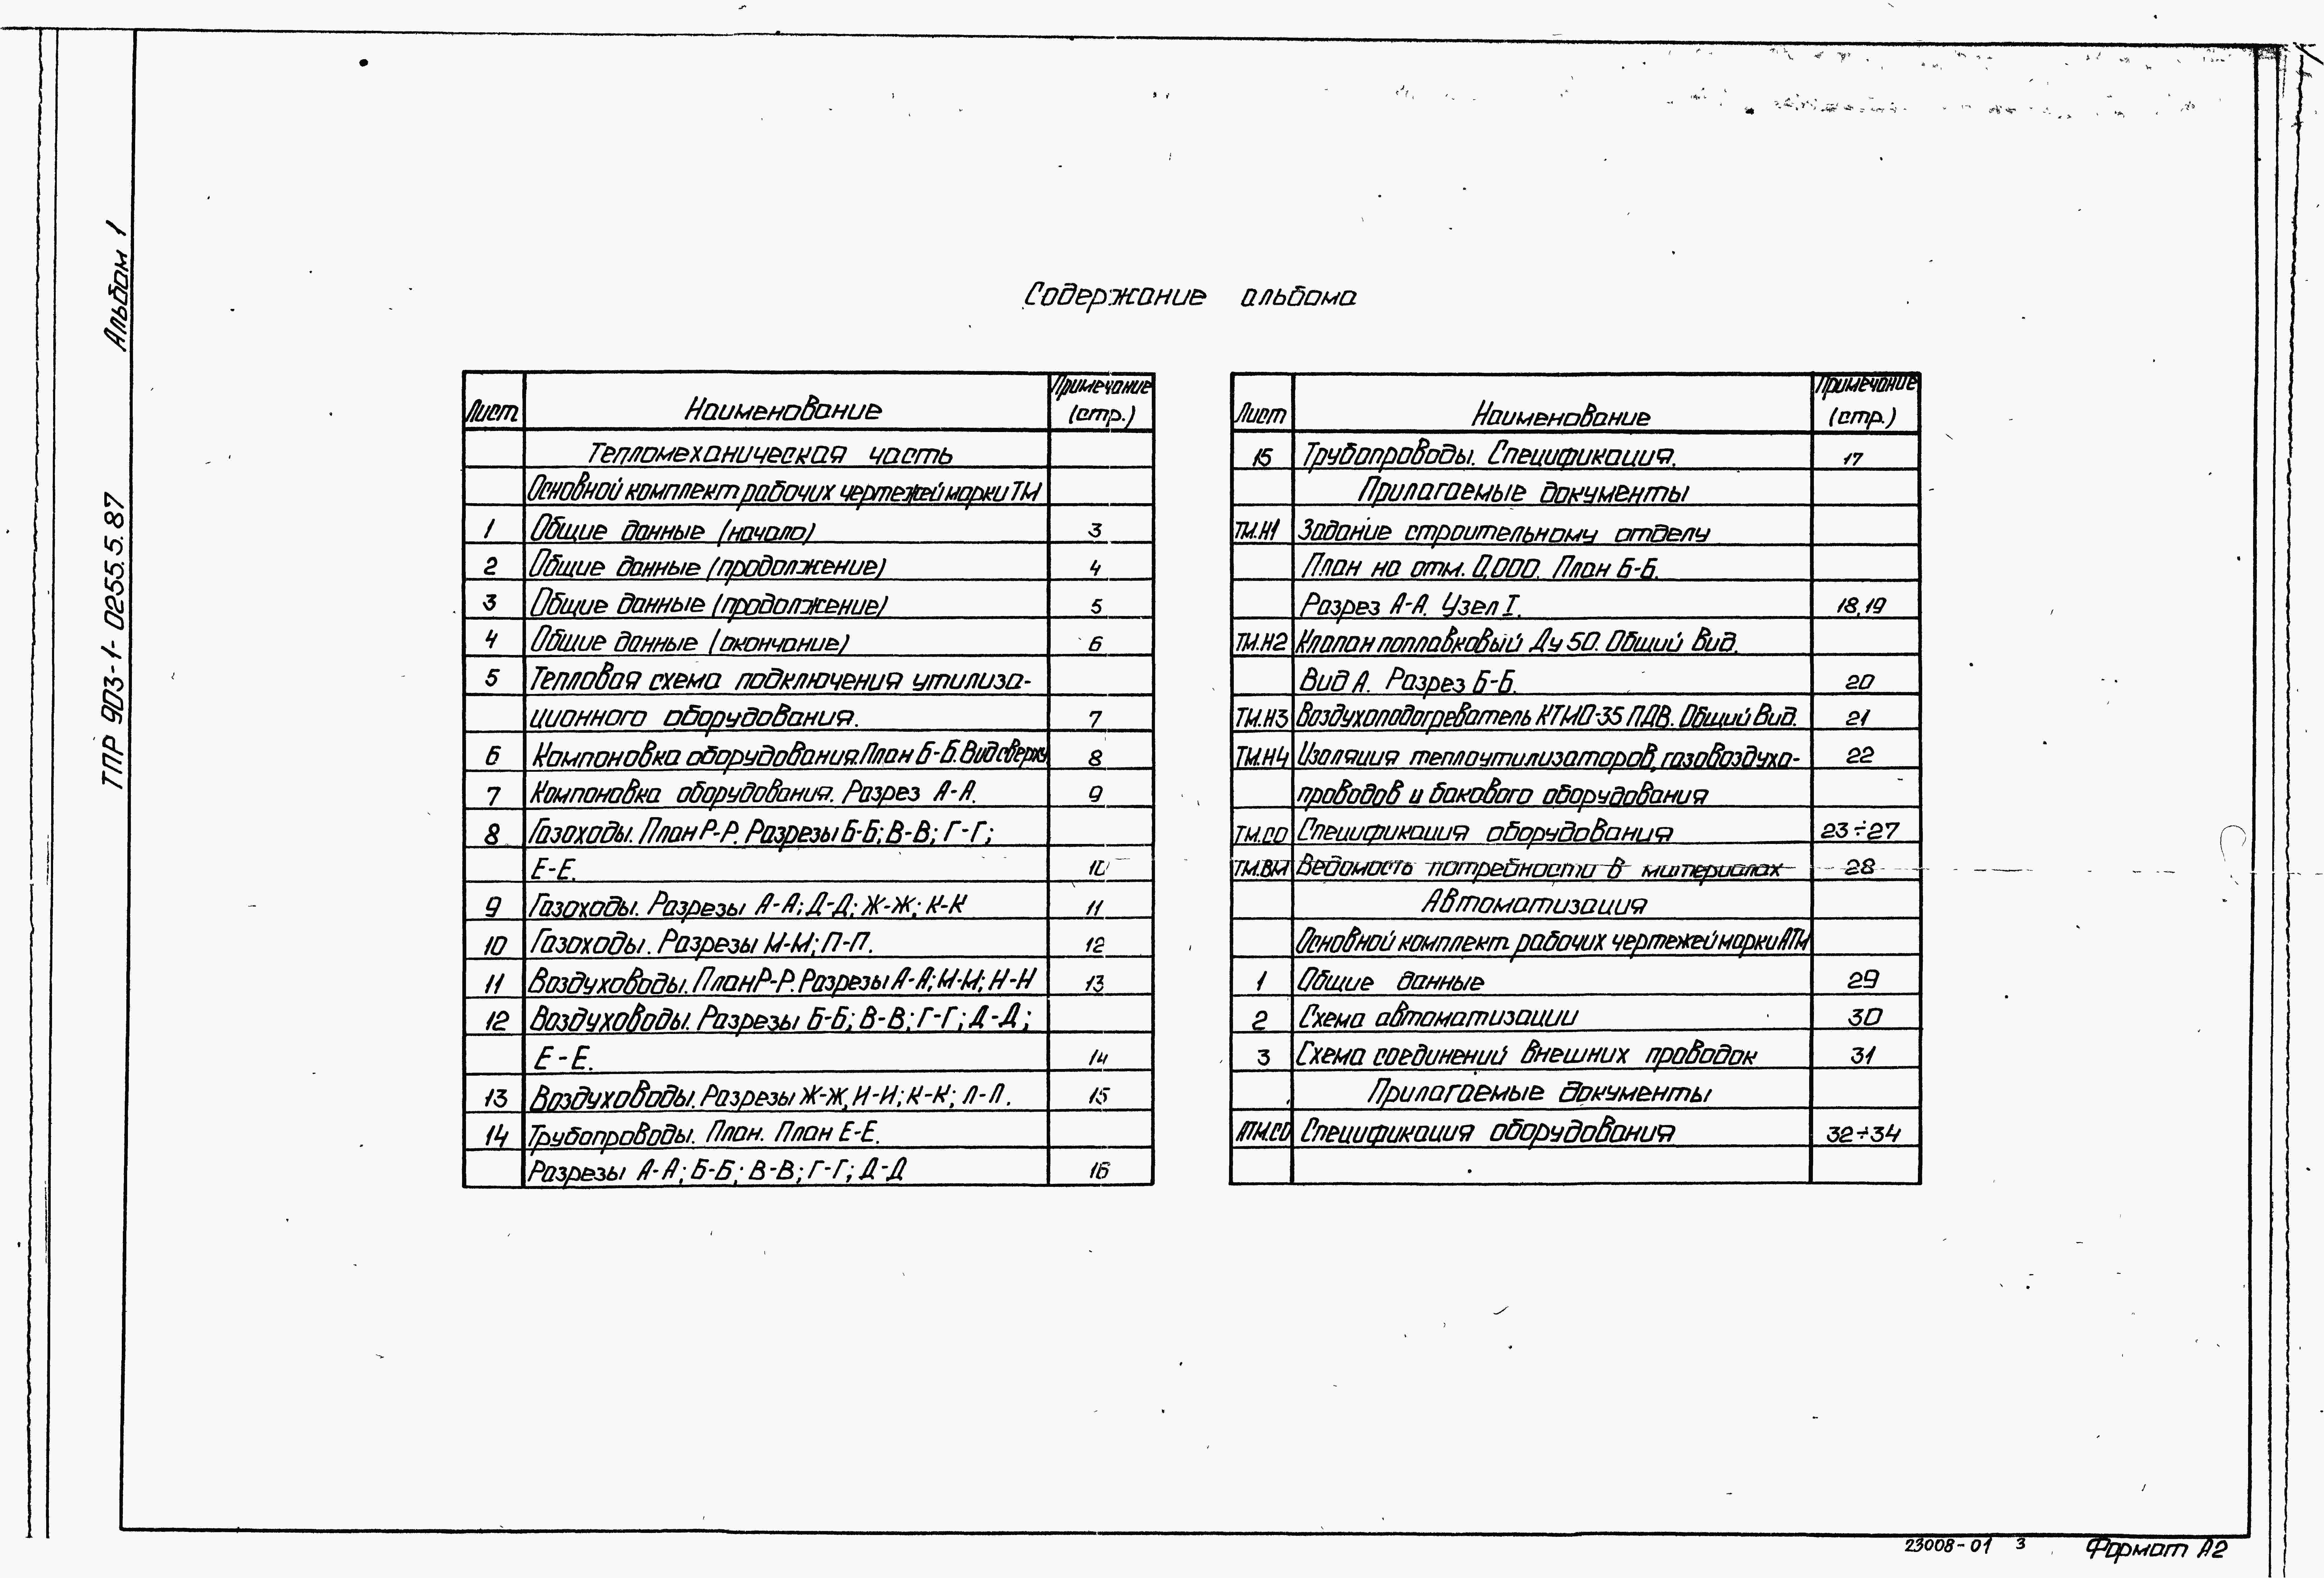 Альбом 1
ТПР 903-1-0255.5.87
Содержание альбома
Лист Наименование Примечание (стр.)
Тепломеханическая часть
Основной комплект рабочих чертежей марки ТМ
1 Общие данные (начало) 3
2 Общие данные (продолжение) 4
3 Общие данные (продолжение) 5
4 Общие данные (окончание) 6
5 Тепловая схема подключения утилиза-
ционного оборудования. 7
6 Компоновка оборудования. План Б-Б. Вид сверху 8
7 Компоновка оборудования. Разрез А-А. 9
8 Газоходы. План Р-Р. Разрезы Б-Б; В-В; Г-Г;
Е-Е. 10
9 Газоходы. Разрезы А-А; Д-Д; Ж-Ж; К-К 11
10 Газоходы. Разрезы М-М; П-П. 12
11 Воздуховоды. План Р-Р. Разрезы А-А; М-М; Н-Н 13
12 Воздуховоды. Разрезы Б-Б; В-В; Г-Г; Д-Д;
Е-Е. 14
13 Воздуховоды. Разрезы Ж-Ж, И-И; К-К; Л-Л. 15
14 Трубопроводы. План. План Е-Е.
Разрезы А-А; Б-Б; В-В; Г-Г; Д-Д 16
Лист Наименование Примечание (стр.)
15 Трубопроводы. Спецификация. 17
Прилагаемые документы
ТМ.Н1 Задание строительному отделу
План на отм. 0,000. План Б-Б.
Разрез А-А. Узел I. 18,19
ТМ.Н2 Клапан поплавковый Ду 50. Общий вид.
Вид А. Разрез Б-Б. 20
ТМ.Н3 Воздухоподогреватель КТМО-35 ПДВ. Общий вид. 21
ТМ.Н4 Изоляция теплоутилизаторов, газовоздухо- 22
проводов и бакового оборудования
ТМ.СО Спецификация оборудования 23÷27
ТМ.ВМ Ведомость потребности в материалах 28
Автоматизация
Основной комплект рабочих чертежей марки АТМ
1 Общие данные 29
2 Схема автоматизации 30
3 Схема соединений внешних проводок 31
Прилагаемые документы
АТМ.СО Спецификация оборудования 32÷34
23008-01 3 Формат А2